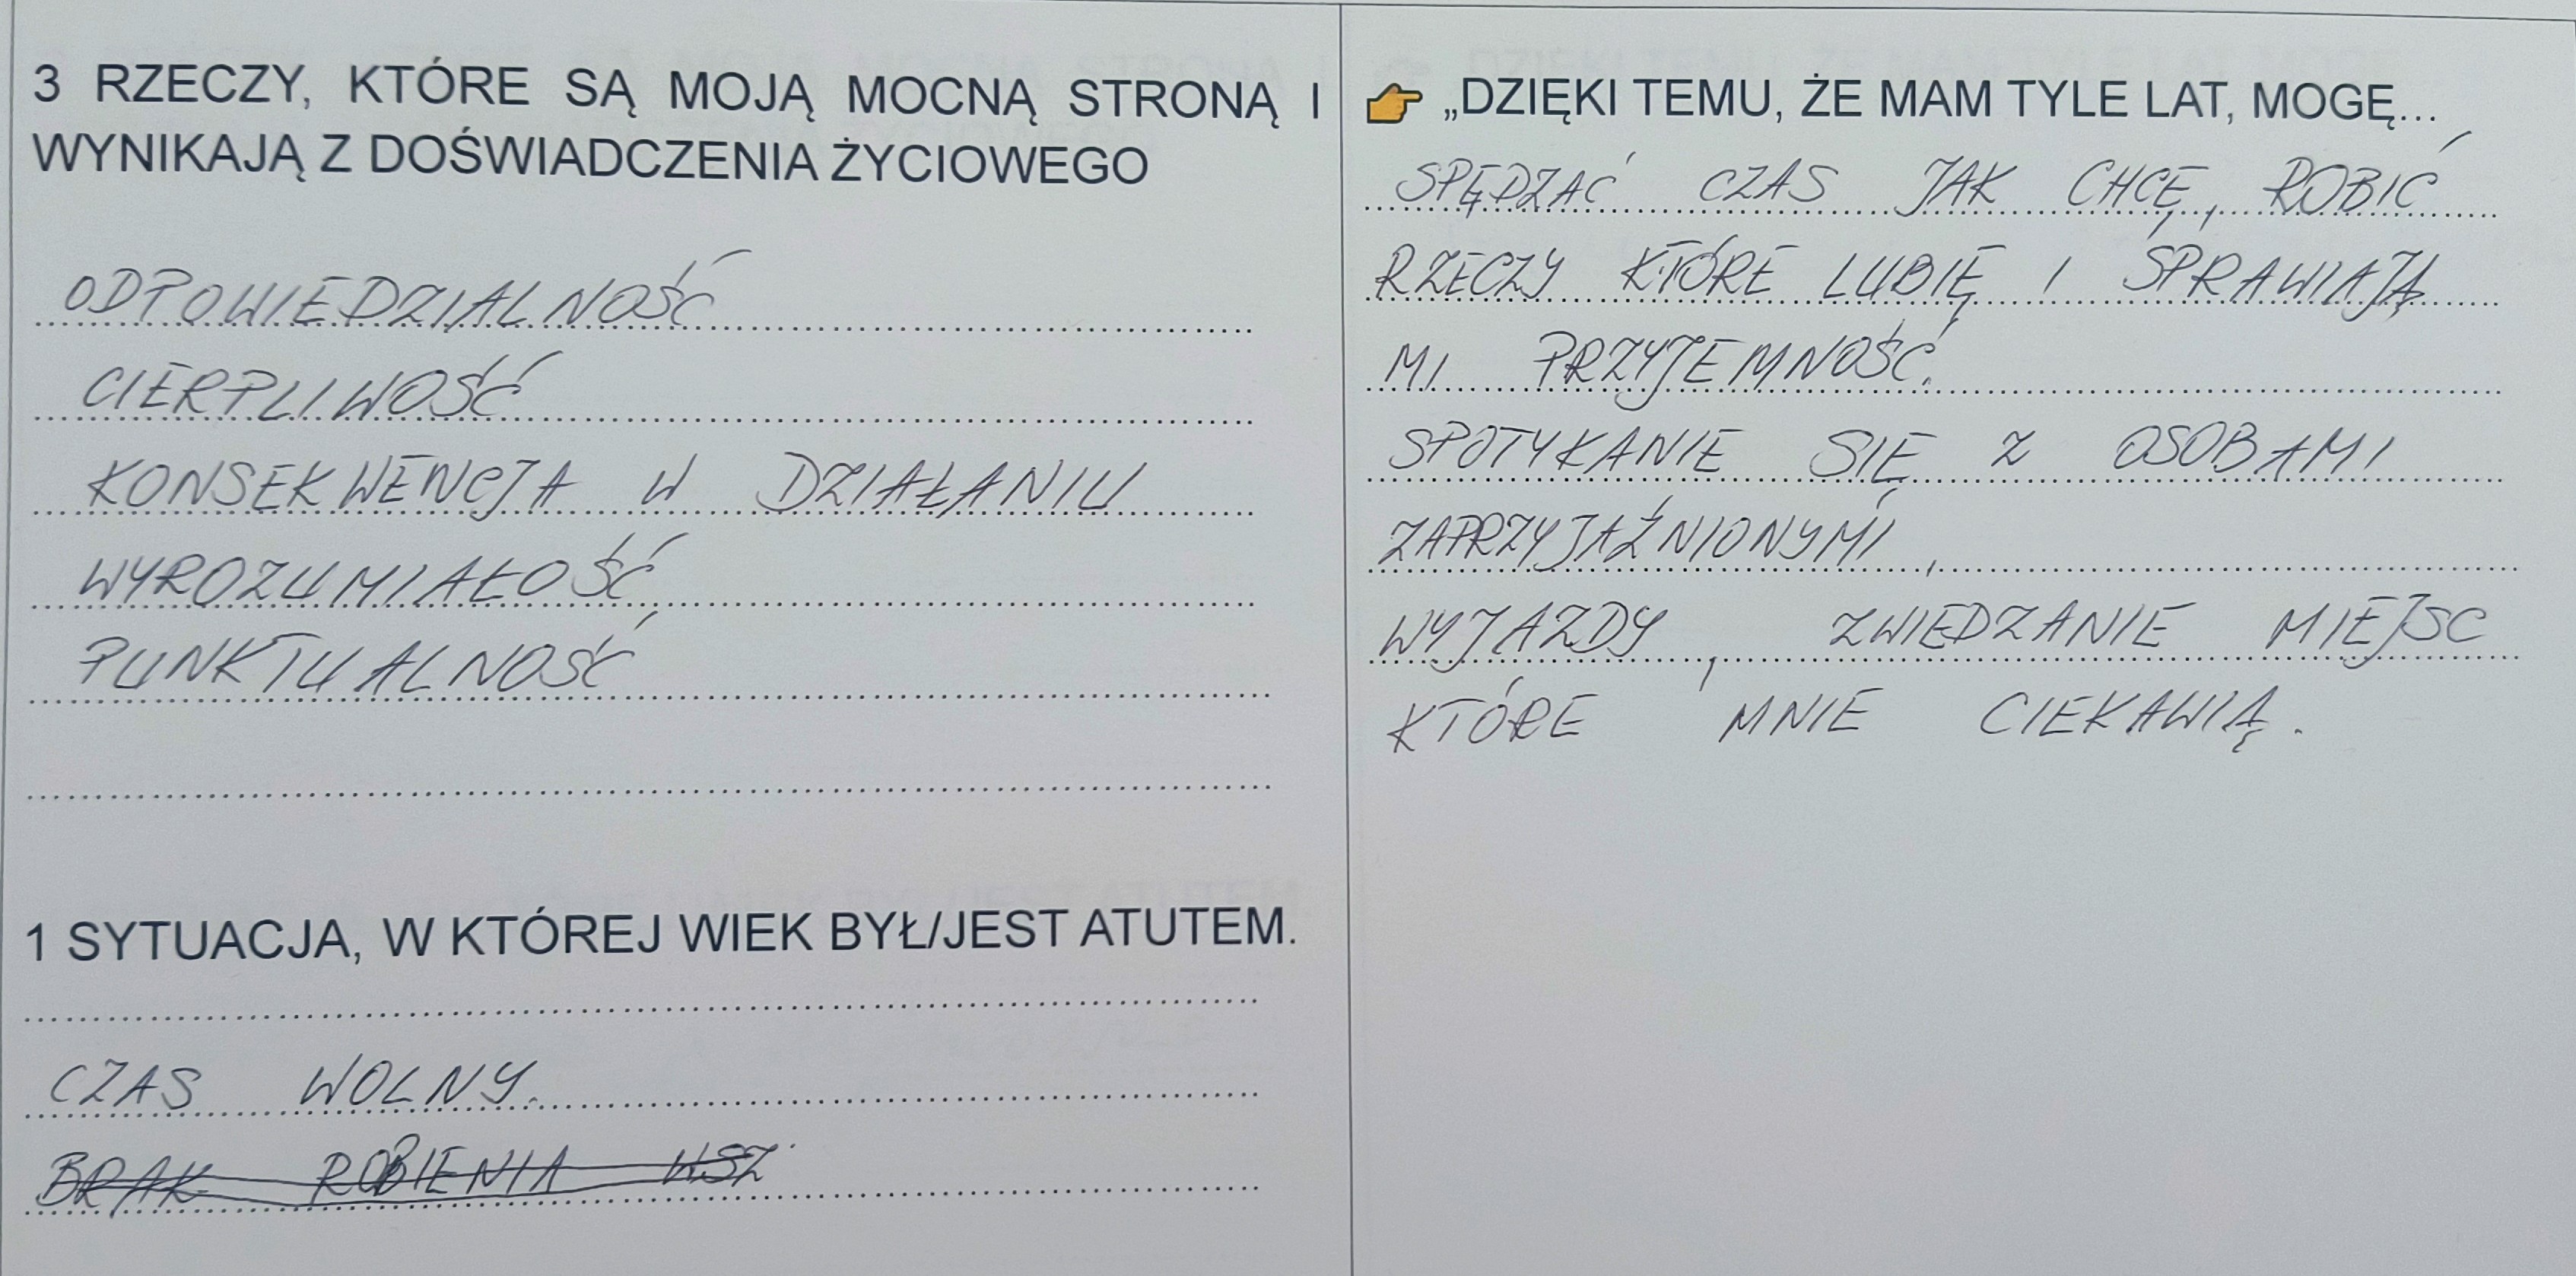 3 RZECZY, KTÓRE SĄ MOJĄ MOCNĄ STRONĄ I
WYNIKAJĄ Z DOŚWIADCZENIA ŻYCIOWEGO
ODPOWIEDZIALNOŚĆ
CIERPLIWOŚĆ
KONSEKWENCJA W DZIAŁANIU
WYROZUMIAŁOŚĆ
PUNKTUALNOŚĆ
1 SYTUACJA, W KTÓREJ WIEK BYŁ/JEST ATUTEM.
CZAS WOLNY.
BRAK ROBIENIA WSZ
👉 „DZIĘKI TEMU, ŻE MAM TYLE LAT, MOGĘ...
SPĘDZAĆ CZAS JAK CHCĘ, ROBIĆ
RZECZY KTÓRE LUBIĘ I SPRAWIAJĄ
MI PRZYJEMNOŚĆ.
SPOTYKANIE SIĘ Z OSOBAMI
ZAPRZYJAŹNIONYMI,
WYJAZDY, ZWIEDZANIE MIEJSC
KTÓRE MNIE CIEKAWIĄ.